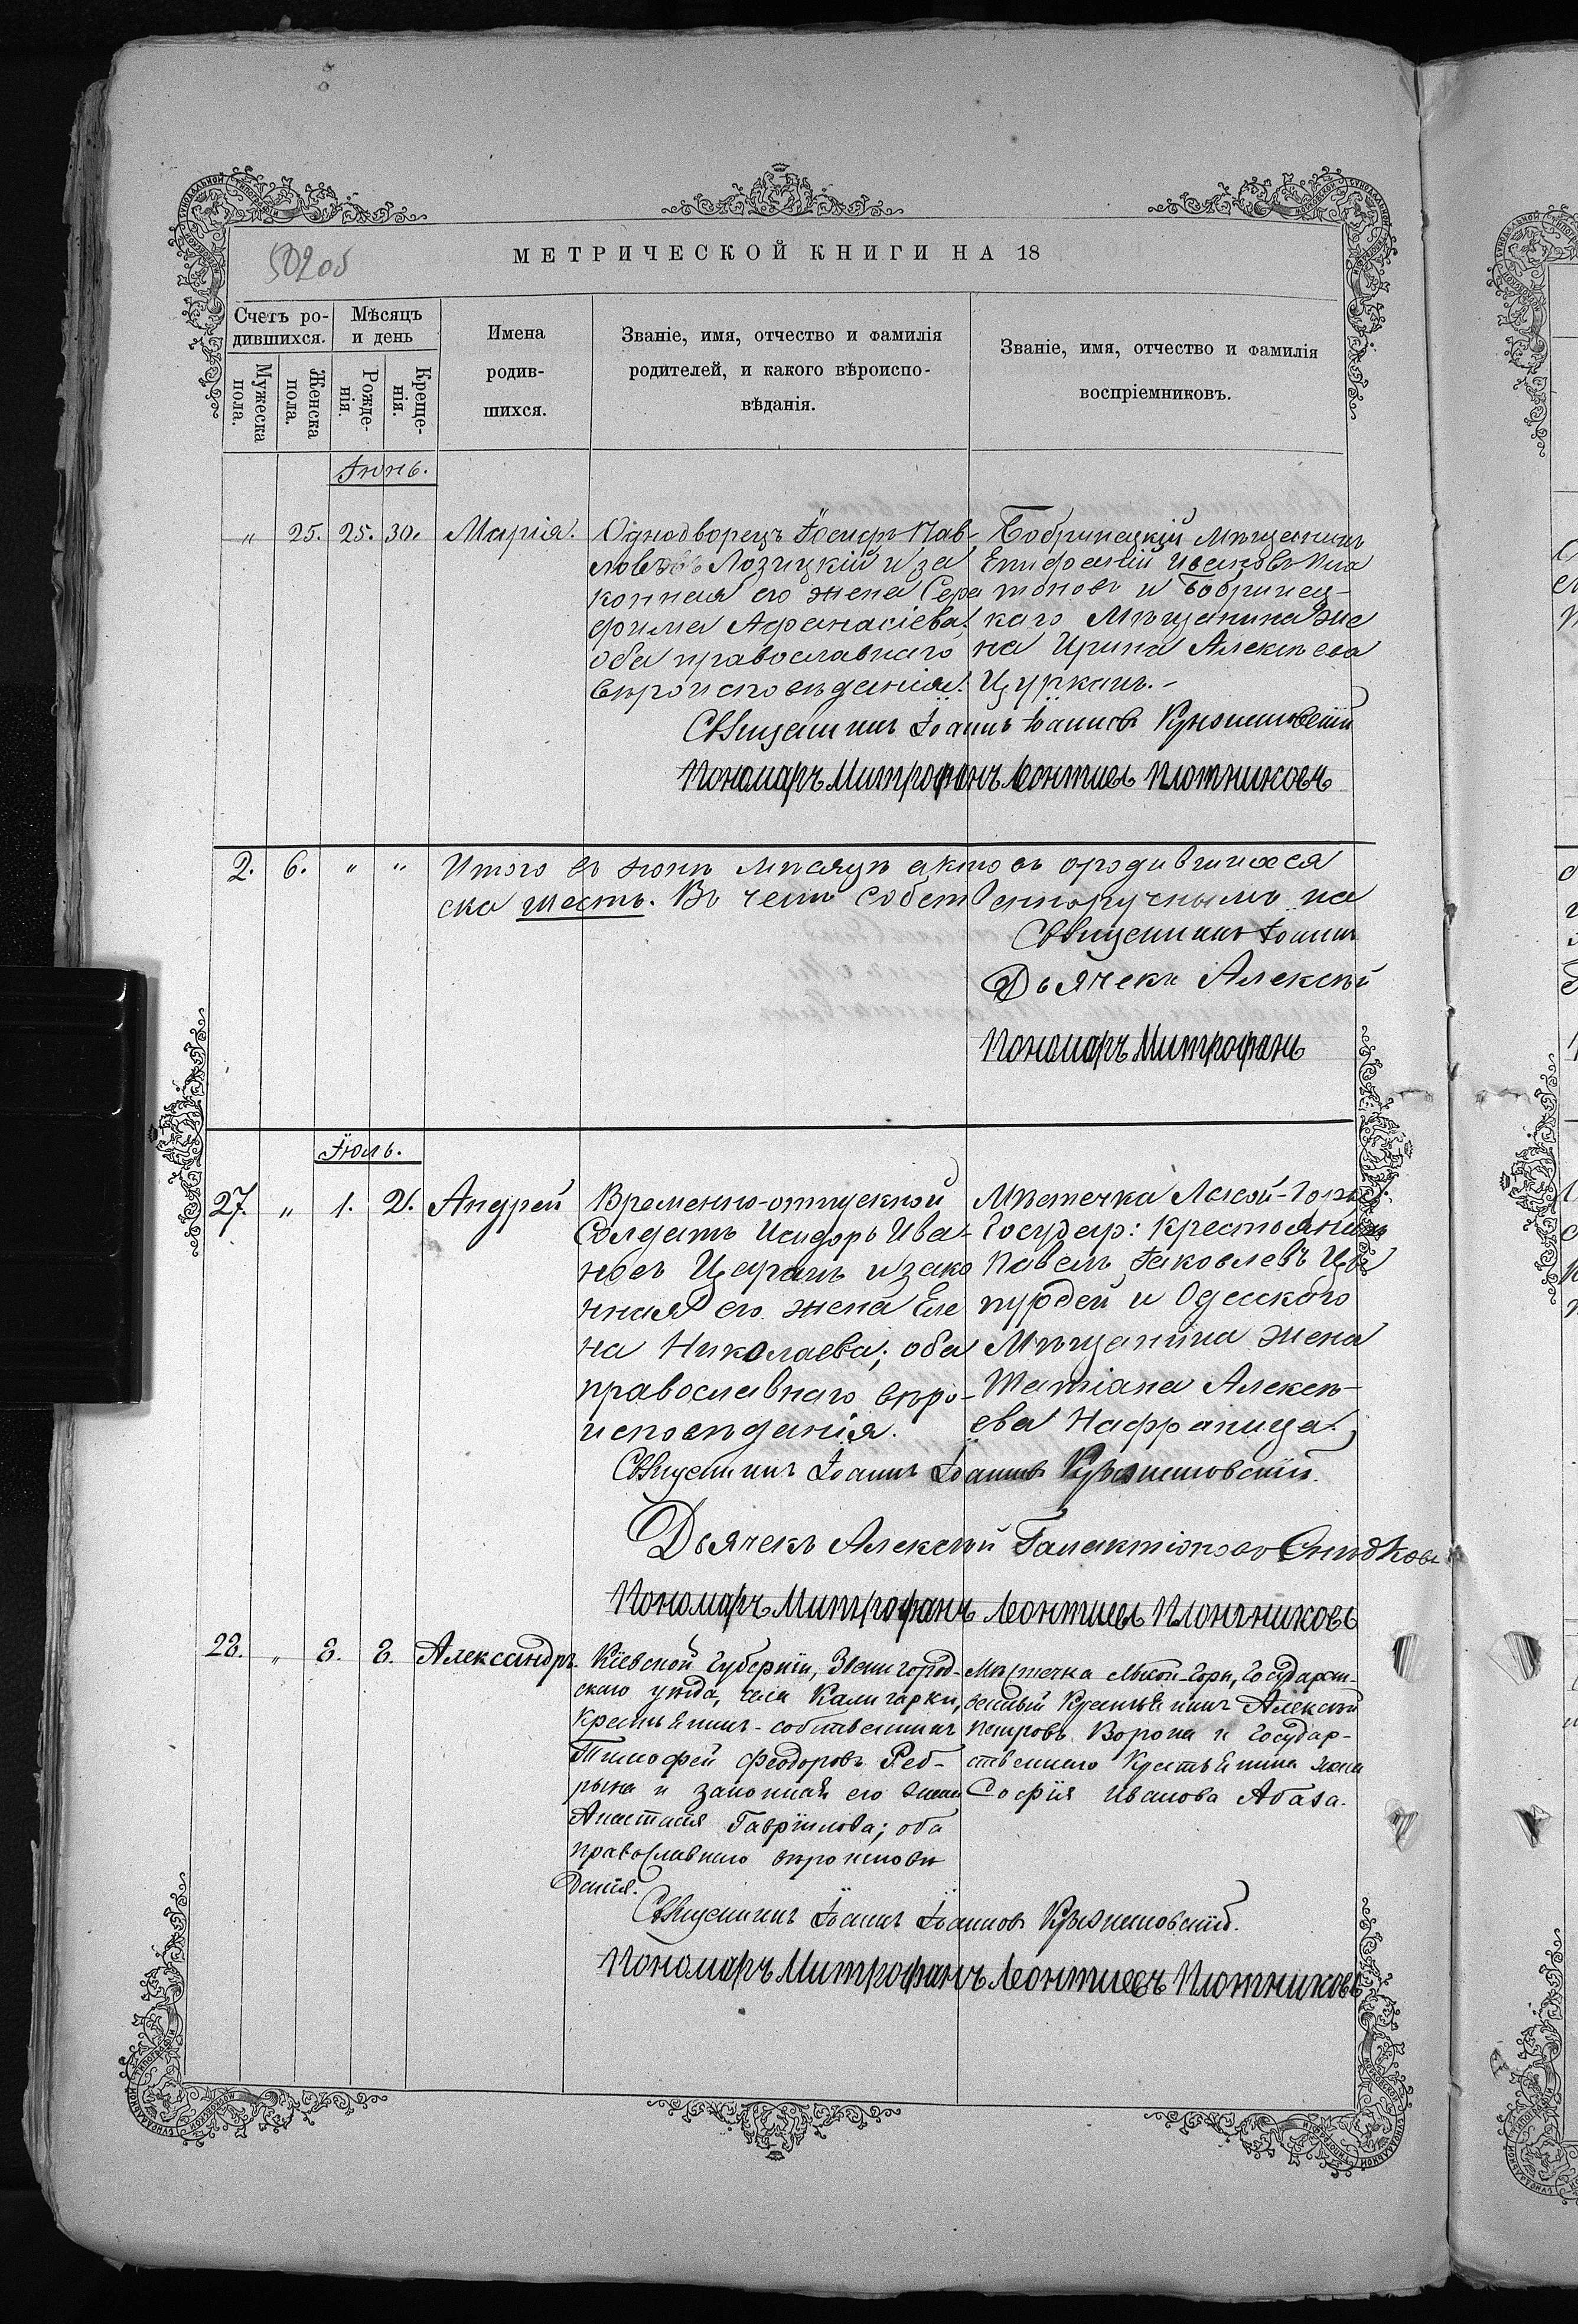 502об
МЕТРИЧЕСКОЙ КНИГИ НА 18
Счетъ ро-
дившихся.
Мѣсяцъ
и день
Мужеска
пола.
Женска
пола.
Рожде-
нія.
Креще-
нія.
Имена
родив-
шихся.
Званіе, имя, отчество и фамилія
родителей, и какого вѣроиспо-
вѣданія.
Званіе, имя, отчество и фамилія
воспріемниковъ.
Іюнь.
" 25. 25. 30. Марія.
Однодворецъ Іосифъ Пав-
ловъ Лозицкій и за
конная его жена Сера
фима Афанасіева;
оба православнаго
вѣроисповѣданія.
Бобринецкій Мѣщанинъ
Епифаній Ивановъ Пла
тоновъ и Бобринец-
каго Мѣщанина же
на Ирина Алексѣева
Цурканъ.-
Священникъ Іоаннъ Іоанновъ
Пономарь Митрофанъ Леонтиевъ Плотниковъ
2. 6. " " Итого въ іюнѣ мѣсяцѣ актовъ о родившихся
ска шесть. Въ чемъ собственноручнымъ на
Священникъ Іоаннъ
Дьячекъ Алексѣй
Пономарь Митрофанъ
Іюль.
27. " 1. 2. Андрей
Временно-отпускной
Солдатъ Исидоръ Ива-
новъ Царанъ и зако
нная его жена Еле
на Николаева; оба
православнаго вѣро-
исповѣданія.
Мѣстечка Лысой-Горы
Государ: крестьянинъ
Павелъ Іаковлевъ Цы
пурдей и Одесскаго
Мѣщанина жена
Татіана Алексѣ-
ева
Священникъ Іоаннъ Іоанновъ
Дьячекъ Алексѣй Галактіоновъ
Пономарь Митрофанъ Леонтиевъ Плотниковъ
28. " 8. 8. Александръ.
Кіевской Губерніи, Звенигород-
скаго уѣзда, села Калигарки,
Крестьянинъ-собственникъ
Тимофей Феодоровъ Реб-
рына и законная его жена
Анастасія Гавріилова; оба
православнаго вѣроисповѣ
данія.
Мѣстечка Лысой-Горы, Государст-
венный Крестьянинъ Алексѣй
Петровъ Ворона и Государ-
ственнаго Крестьянина жена
Софія Иванова Абаза.
Священникъ Іоаннъ Іоанновъ
Пономарь Митрофанъ Леонтиевъ Плотниковъ